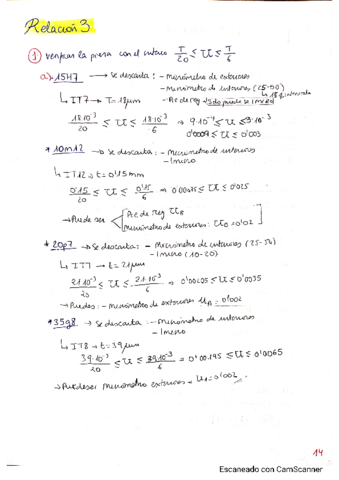 Relación 3
① verificar la pieza con el criterio T/20 ≤ U ≤ T/6
a) · 15H7 → Se descarta: - Micrómetro de exteriores
- Micrómetro de interiores (25-50)
↳ IT7 → T = 18μm
18·10⁻³/20 ≤ U ≤ 18·10⁻³/6 ⇒ 9·10⁻⁴ ≤ U ≤ 3·10⁻³
0'0009 ≤ U ≤ 0'003
* 10m12 → Se descarta: - Micrómetro de interiores
↳ IT12 → t = 0'15mm
0'15/20 ≤ U ≤ 0'15/6 ⇒ 0'0075 ≤ U ≤ 0'025
→ Puede ser
Micrómetro de exteriores: U₀ = 0'02
* 20p7 → Se descarta: - Micrómetro de interiores
↳ IT7 → t = 21μm
21·10⁻³/20 ≤ U ≤ 21·10⁻³/6 ⇒ 0'00105 ≤ U ≤ 0'0035
- Micrómetro de exteriores U = 0'002
* 35g8 → Se descarta: - Micrómetro de interiores
↳ IT8 → t = 39μm
39·10⁻³/20 ≤ U ≤ 39·10⁻³/6 ⇒ 0'00195 ≤ U ≤ 0'0065
→ Puede ser Micrómetro exteriores - U = 0'002
14
Escaneado con CamScanner